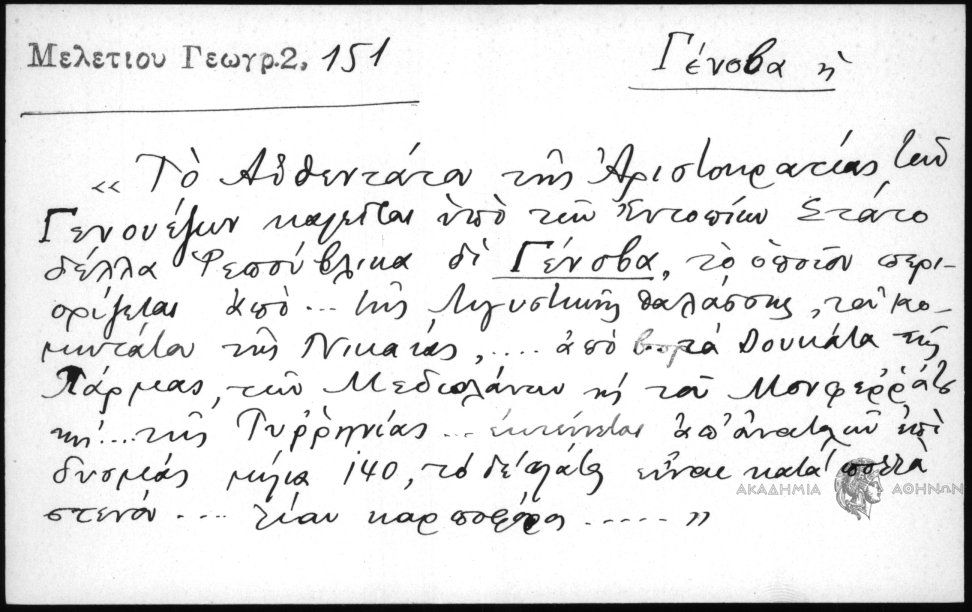 Μελετίου Γεωγρ.2, 151
Γένοβα ἡ
« Τὸ Αὐθεντάτον τῆς Ἀριστοκρατίας τῶν
Γενουέζων καλεῖται ὑπὸ τῶν Ἐντοπίων Στάτο
δέλλα Ρεπούβλικα δὶ Γένοβα, τὸ ὁποῖον περι-
ορίζεται ἀπὸ ... τῆς Λιγυστικῆς θαλάσσης, τοῦ Κο-
μιντάτου τῆς Νικαίας, .... ἀπὸ τὰ Δουκάτα τῆς
Πάρμας, τῶν Μεδιολάνων καὶ τοῦ Μονφερράτου
καὶ ... τῆς Τυρρηνίας ... ἐκτείνεται ἀπ' ἀνατολῶν ἐπὶ
δυσμὰς μίλια 140, τὸ δὲ πλάτος εἶναι κατὰ πολλὰ
στενόν .... λίαν καρποφόρος ..... »
ΑΚΑΔΗΜΙΑ ΑΘΗΝΩΝ